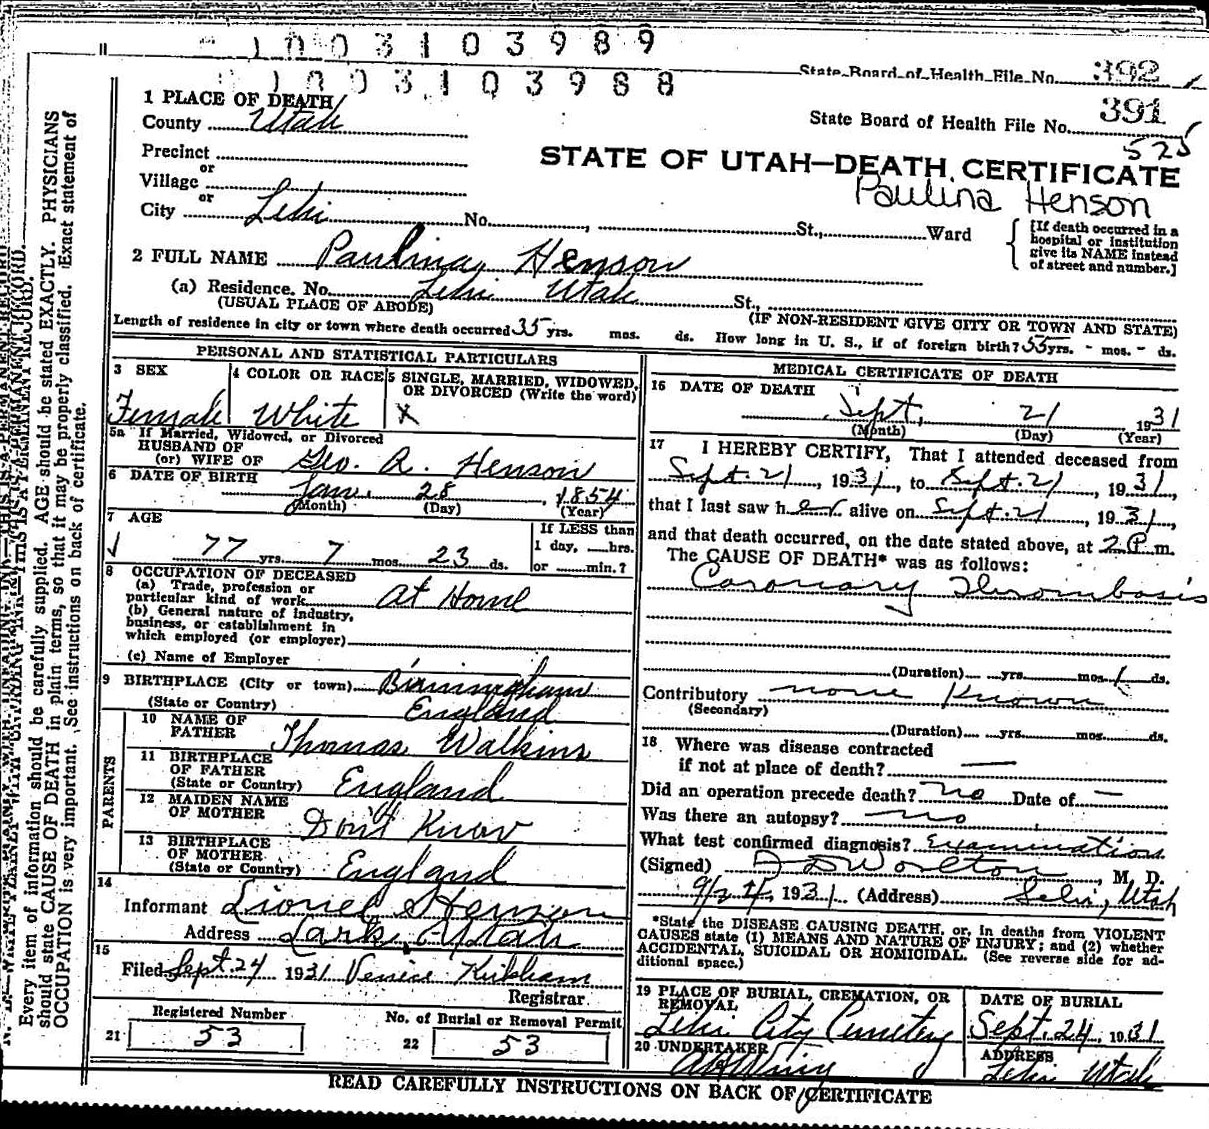 1003103989
State Board of Health File No. 392
1003103988
391
State Board of Health File No.
525
1 PLACE OF DEATH
County Utah
STATE OF UTAH—DEATH CERTIFICATE
Precinct
or
Village
Paulina Henson
or
City Lehi No. , St., Ward
[If death occurred in a hospital or institution give its NAME instead of street and number.]
2 FULL NAME Paulina Henson
(a) Residence. No. Lehi Utah St.,
(USUAL PLACE OF ABODE) (IF NON-RESIDENT GIVE CITY OR TOWN AND STATE)
Length of residence in city or town where death occurred 35 yrs. mos. ds. How long in U. S., if of foreign birth? 55 yrs. - mos. - ds.
PERSONAL AND STATISTICAL PARTICULARS
3 SEX
Female
4 COLOR OR RACE
White
5 SINGLE, MARRIED, WIDOWED,
OR DIVORCED (Write the word)
X
5a If Married, Widowed, or Divorced
HUSBAND OF
(or) WIFE OF Geo. A. Henson
6 DATE OF BIRTH
Jan. 28, 1854
(Month) (Day) (Year)
7 AGE
77 yrs. 7 mos. 23 ds.
If LESS than
1 day, hrs.
or min.?
8 OCCUPATION OF DECEASED
(a) Trade, profession or
particular kind of work At Home
(b) General nature of industry,
business, or establishment in
which employed (or employer)
(c) Name of Employer
9 BIRTHPLACE (City or town) Birmingham
(State or Country) England
PARENTS
10 NAME OF
FATHER Thomas Walkins
11 BIRTHPLACE
OF FATHER
(State or Country) England
12 MAIDEN NAME
OF MOTHER Don't Know
13 BIRTHPLACE
OF MOTHER
(State or Country) England
14
Informant Lionel Henson
Address Lark, Utah
15
Filed Sept. 24 1931 Venice Kirkham
Registrar
Registered Number
21 53
No. of Burial or Removal Permit
22 53
MEDICAL CERTIFICATE OF DEATH
16 DATE OF DEATH
Sept, 21 1931
(Month) (Day) (Year)
17 I HEREBY CERTIFY, That I attended deceased from
Sept. 21, 1931, to Sept. 21, 1931,
that I last saw her alive on Sept. 21, 1931,
and that death occurred, on the date stated above, at 2 P. m.
The CAUSE OF DEATH* was as follows:
Coronary Thrombosis
(Duration) yrs. mos. 1 ds.
Contributory none known
(Secondary)
(Duration) yrs. mos. ds.
18 Where was disease contracted
if not at place of death? —
Did an operation precede death? no Date of —
Was there an autopsy? no
What test confirmed diagnosis? Examination
(Signed) Worlton, M. D.
1931 (Address) Lehi, Utah
*State the DISEASE CAUSING DEATH, or, in deaths from VIOLENT
CAUSES state (1) MEANS AND NATURE OF INJURY; and (2) whether
ACCIDENTAL, SUICIDAL OR HOMICIDAL. (See reverse side for ad-
ditional space.)
19 PLACE OF BURIAL, CREMATION, OR
REMOVAL
Lehi City Cemetery
DATE OF BURIAL
Sept. 24, 1931
20 UNDERTAKER
ADDRESS
Lehi Utah
READ CAREFULLY INSTRUCTIONS ON BACK OF CERTIFICATE
Every item of information should be carefully supplied. AGE should be stated EXACTLY. PHYSICIANS
should state CAUSE OF DEATH in plain terms, so that it may be properly classified. Exact statement of
OCCUPATION is very important. See instructions on back of certificate.